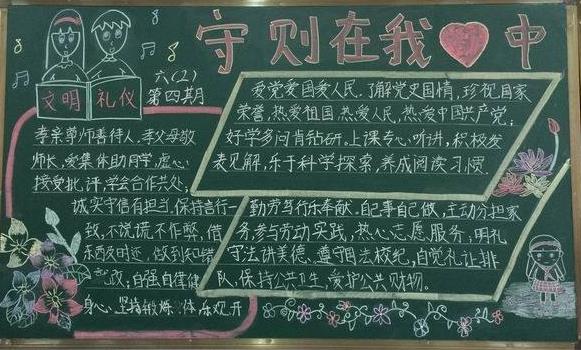 守则在我中
六(2)
第四期
文明 礼仪
爱党爱国爱人民.了解党史国情,珍视国家
荣誉,热爱祖国,热爱人民,热爱中国共产党;
好学多问肯钻研.上课专心听讲,积极发
表见解,乐于科学探索,养成阅读习惯
孝亲尊师善待人.孝父母敬
师长,爱集体助同学,虚心
接受批评,学会合作共处;
诚实守信有担当.保持言行一
致,不说谎不作弊,借
东西及时还,做到知错
就改;自强自律健
身心.坚持锻炼.体乐观开
勤劳笃行乐奉献.自己事自己做,主动分担家
务,参与劳动实践,热心志愿服务;明礼
守法讲美德、遵守国法校纪,自觉礼让排
队,保持公共卫生,爱护公共财物.